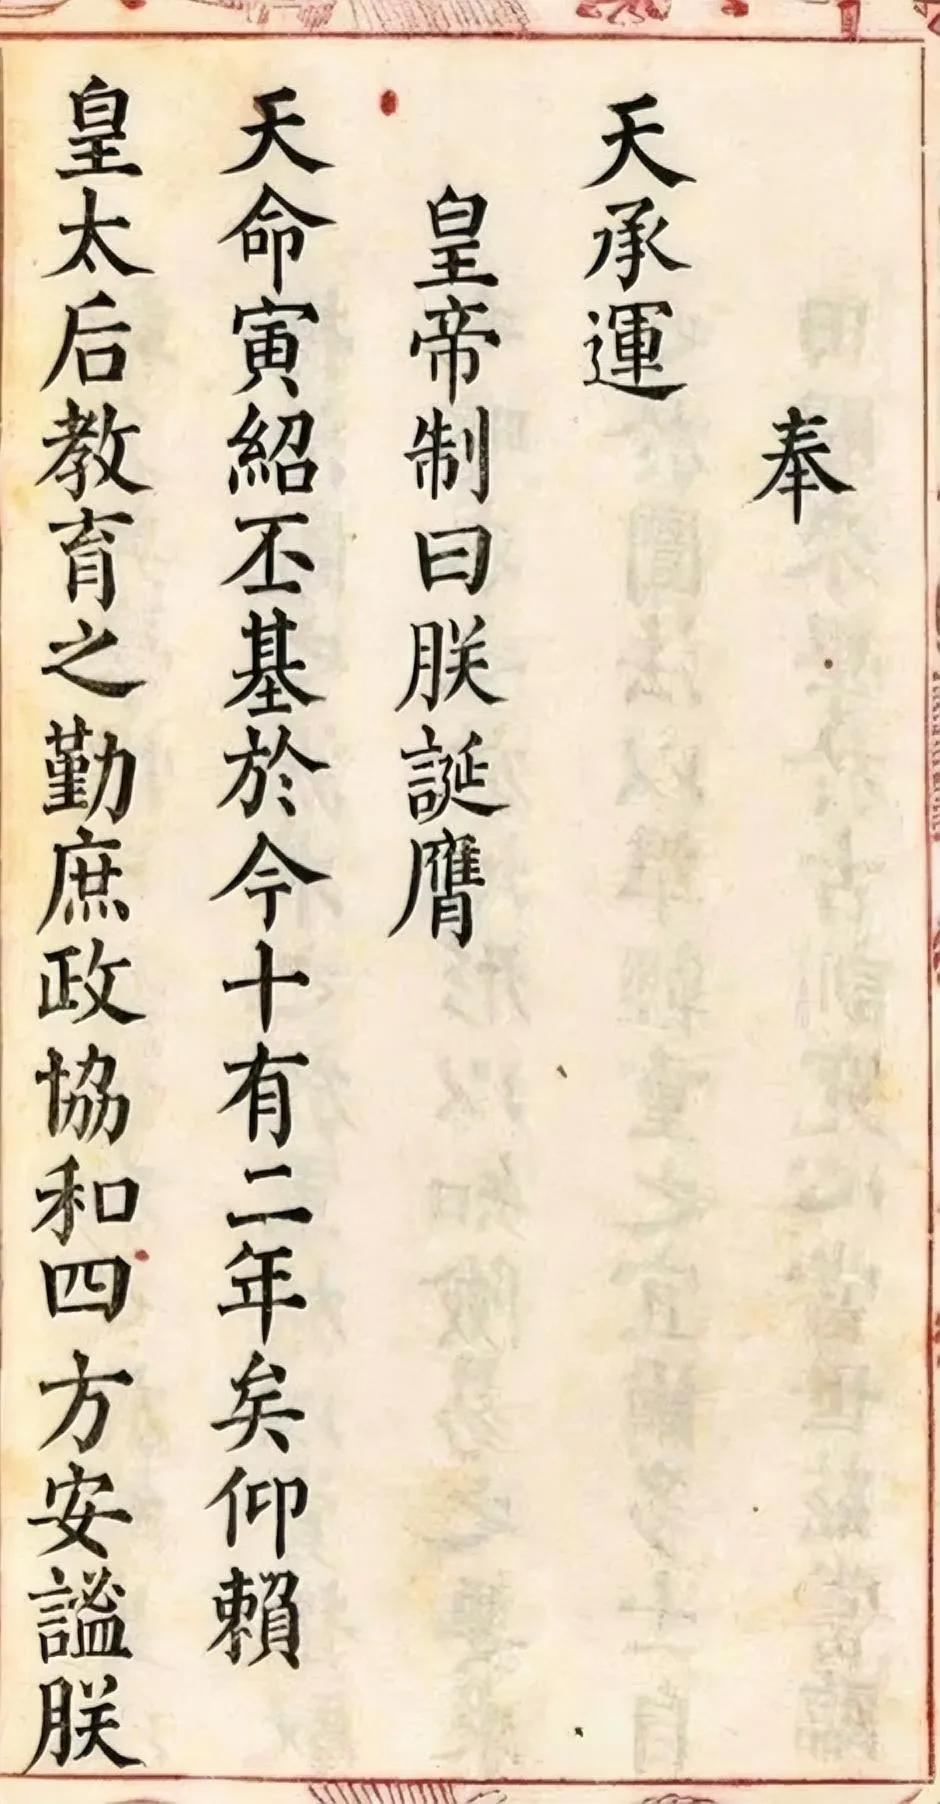 奉
天承運
皇帝制曰朕誕膺
天命寅紹丕基於今十有二年矣仰賴
皇太后教育之勤庶政協和四方安謐朕